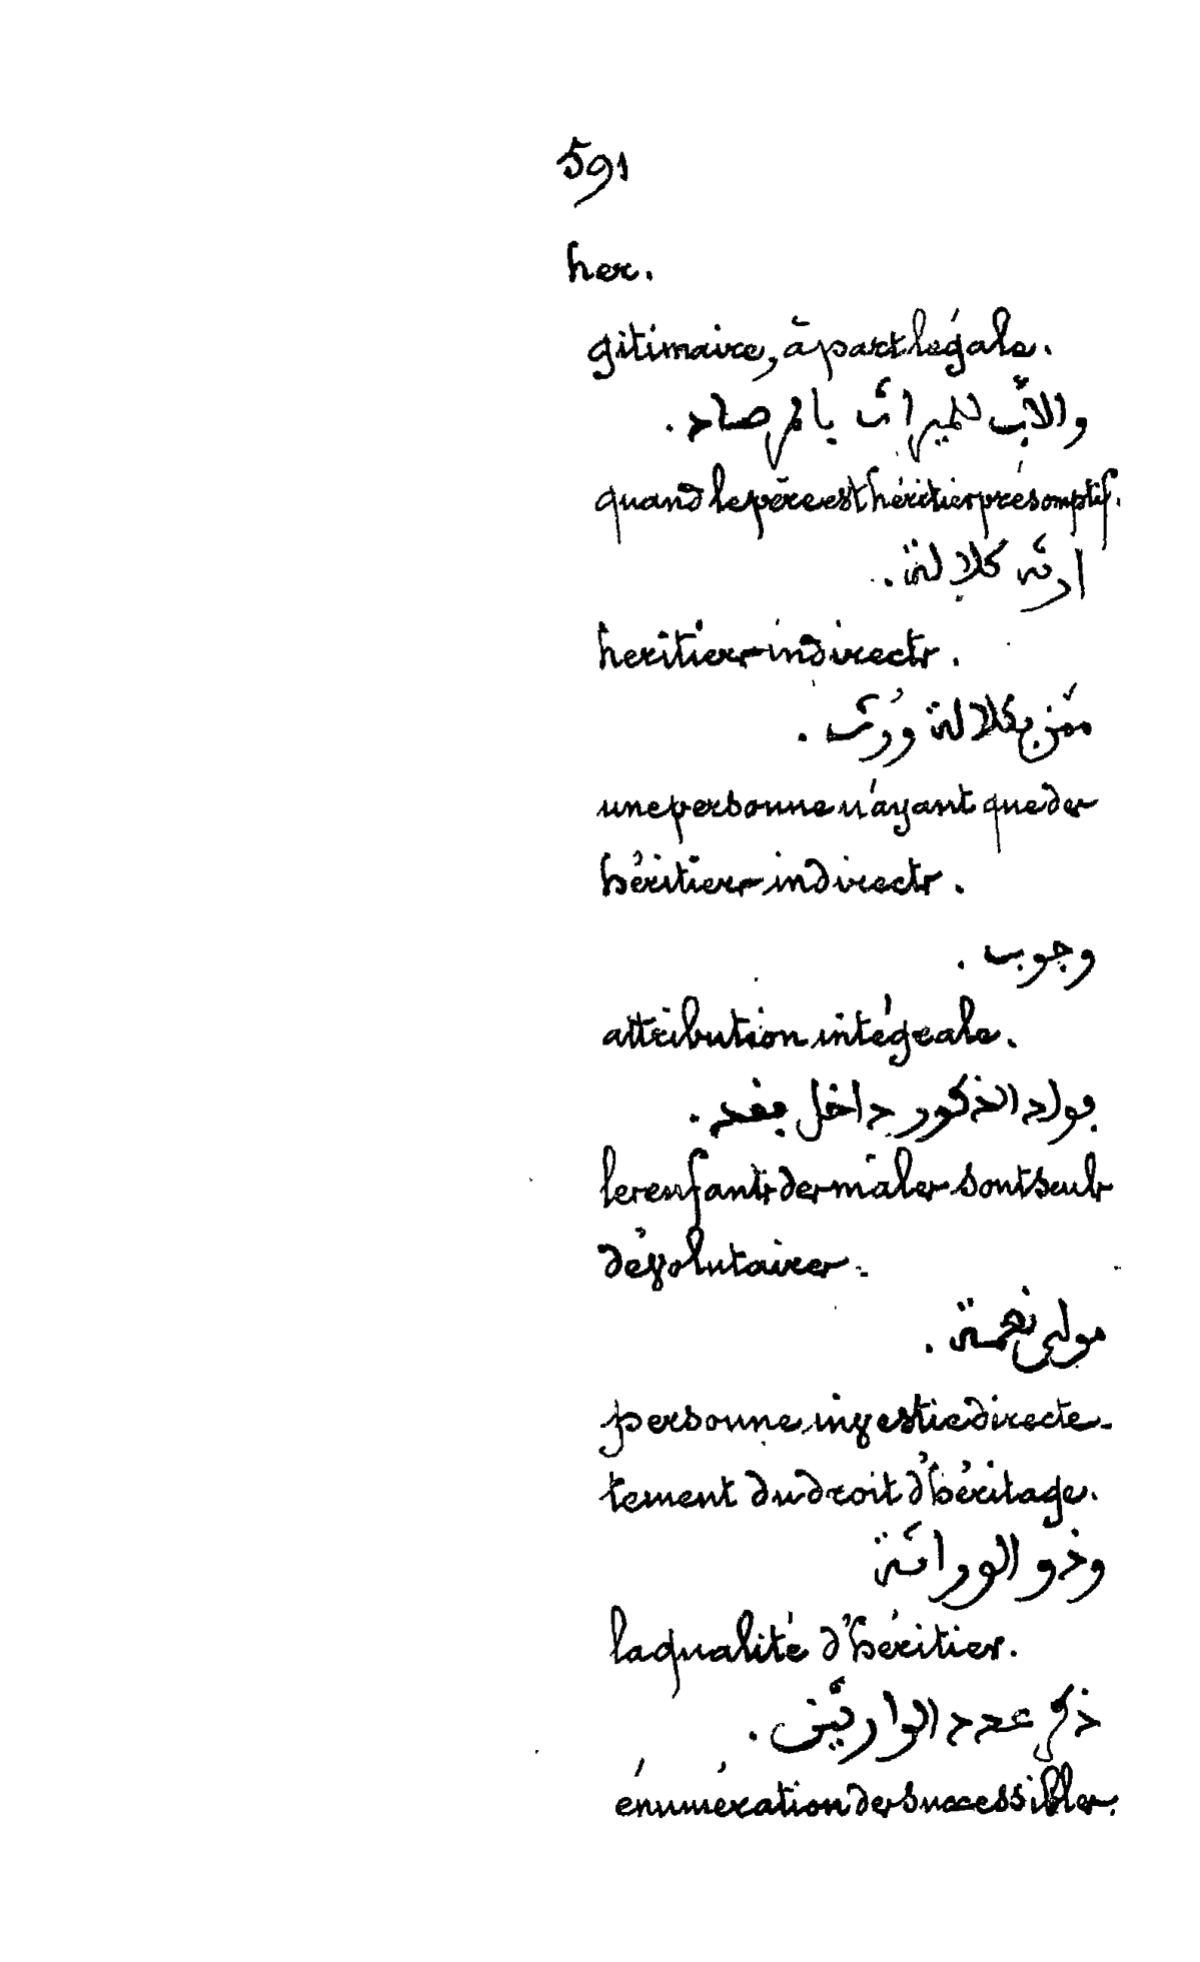 591
her.
gitimaire, à part légale.
والاب للميراث بالمرصاد.
quand le père est héritier présomptif.
ارثه كلالة.
heritiers indirects.
ممن بكلالة وُرث.
une personne n'ayant que des
héritiers indirects.
وجوب.
attribution intégrale.
بولد الذكور داخل بقد.
les enfants des mâles sont seuls
dévolutaires.
مولى نعمة.
personne investie directe-
tement du droit d'héritage.
وذو الوراثة
la qualité d'héritier.
ذكر عدد الوارثين.
énumération des successibles.